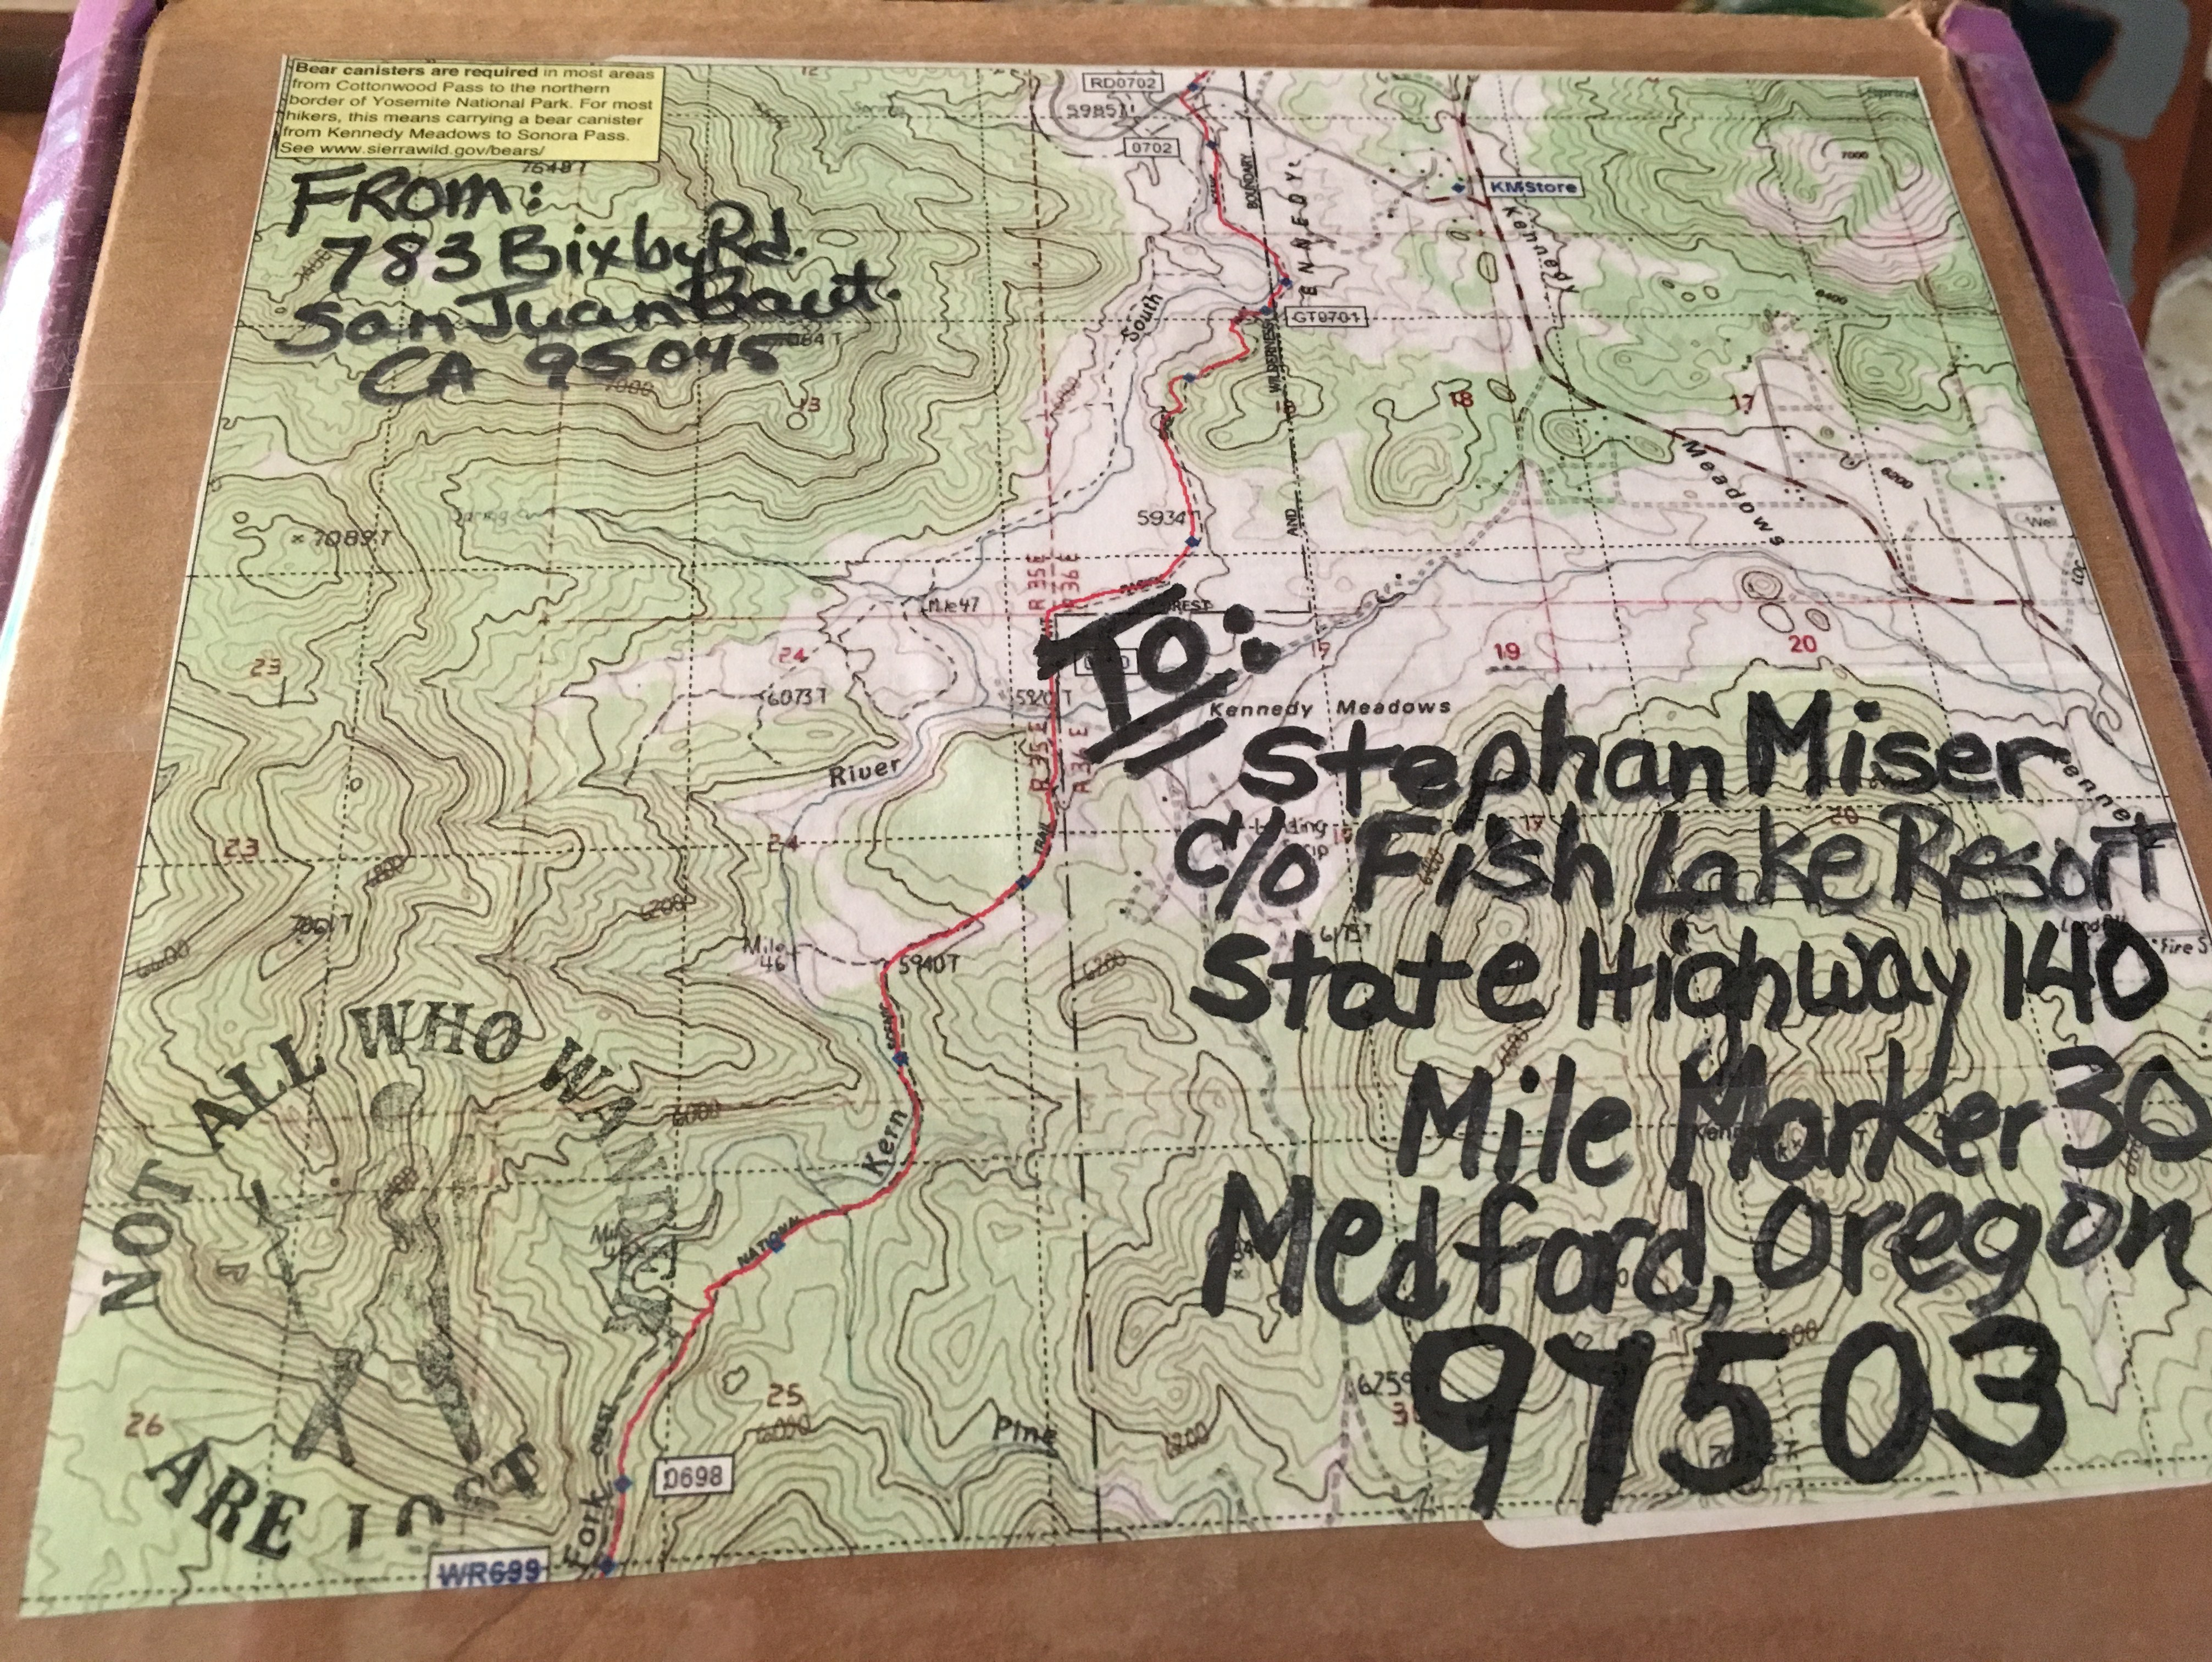 Bear canisters are required in most areas
from Cottonwood Pass to the northern
border of Yosemite National Park. For most
hikers, this means carrying a bear canister
from Kennedy Meadows to Sonora Pass.
See www.sierrawild.gov/bears/
FROM:
783 Bixby Rd.
San Juan Baut.
CA 95045
TO:
Stephan Miser
c/o Fish Lake Resort
State Highway 140
Mile Marker 30
Medford, Oregon
97503
NOT ALL WHO WANDER
ARE LOST
RD0702
5985T
0702
KMStore
BOUNDARY
Kennedy
Meadows
South
GT0701
WILDERNESS
AND
7000
7000
6400
6200
13
18
17
7089T
5934T
R 35 E
R 36 E
Mile 47
Well
23
24
19
20
6073T
Kennedy Meadows
River
R 35 E
R 36 E
23
24
TRAIL
6200
Mile
46
5940T
6175T
6200
SCENIC
6000
Kern
NATIONAL
25
6000
26
Pine
6200
6259
CREST
0698
Fork
WR699